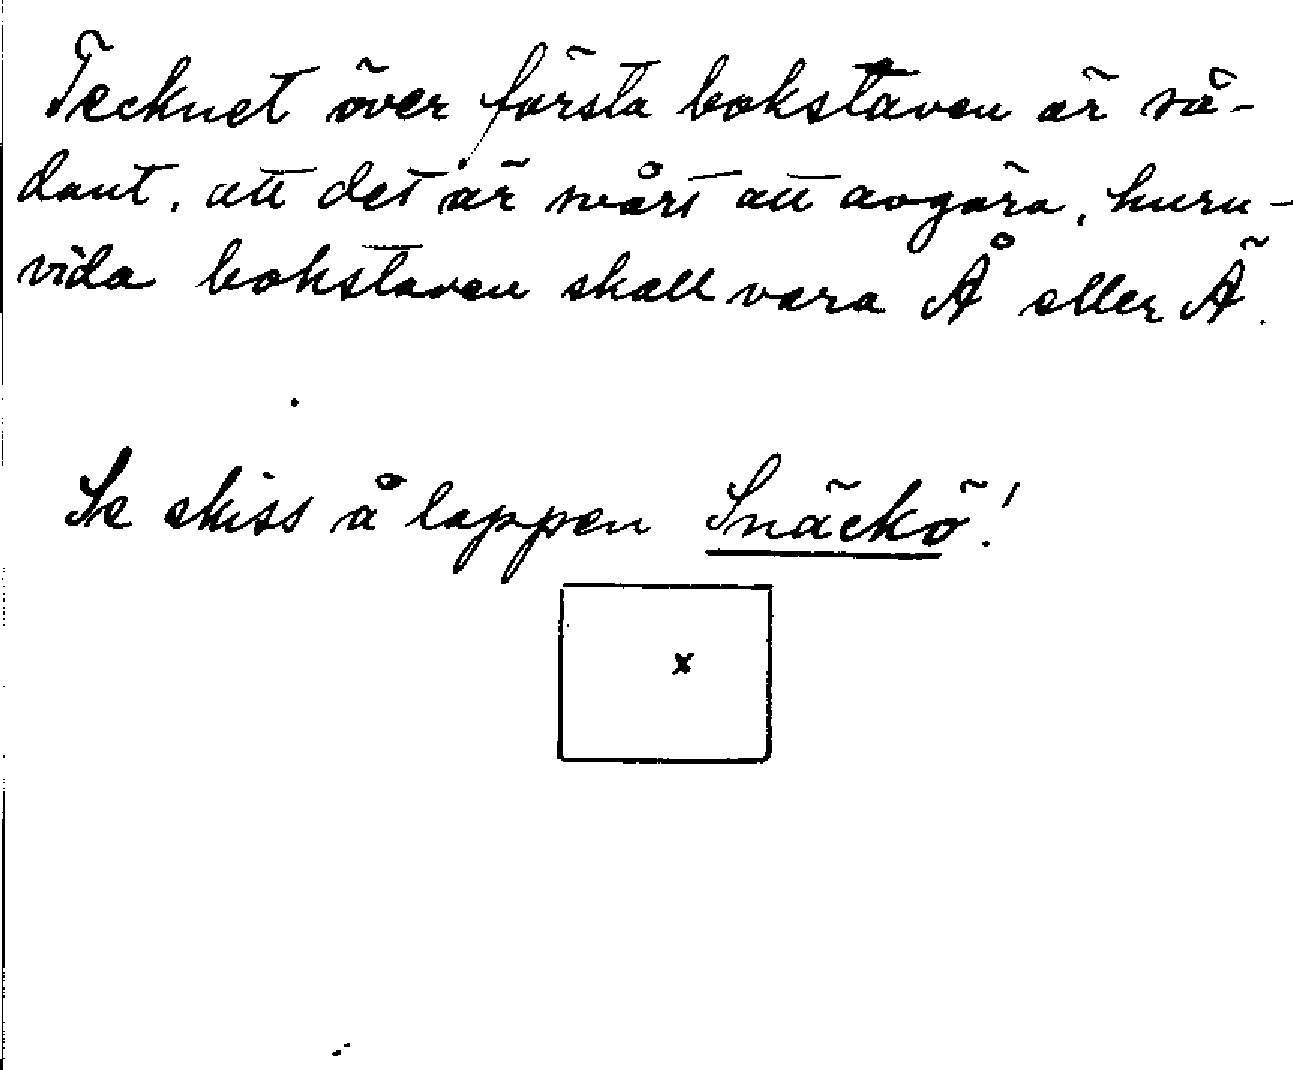 Tecknet över första bokstaven är så-
dant, att det är svårt att avgöra, huru-
vida bokstaven skall vara Å eller Ä.
Se skiss å lappen Snäckö!
x